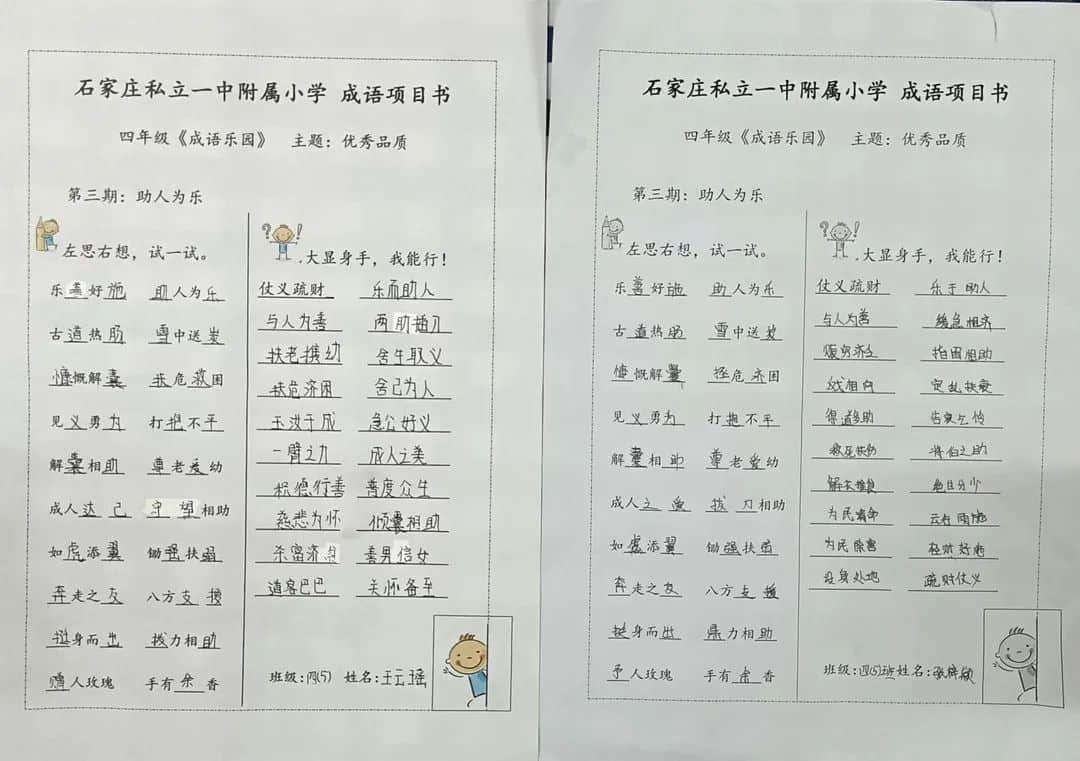 石家庄私立一中附属小学 成语项目书
四年级《成语乐园》 主题：优秀品质
第三期：助人为乐
左思右想，试一试。
乐善好施 助人为乐
古道热肠 雪中送炭
慷慨解囊 扶危救困
见义勇为 打抱不平
解囊相助 尊老爱幼
成人达己 守望相助
如虎添翼 锄强扶弱
奔走之友 八方支援
挺身而出 拔力相助
赠人玫瑰 手有余香
?! .大显身手，我能行！
仗义疏财 乐而助人
与人为善 两肋插刀
扶老携幼 舍生取义
扶危济困 舍己为人
玉汝于成 急公好义
一臂之力 成人之美
积德行善 普度众生
慈悲为怀 倾囊相助
杀富济贫 善男信女
逍客巴巴 关怀备至
班级：四(5) 姓名：王云瑶
石家庄私立一中附属小学 成语项目书
四年级《成语乐园》 主题：优秀品质
第三期：助人为乐
左思右想，试一试。
乐善好施 助人为乐
古道热肠 雪中送炭
慷慨解囊 拯危济困
见义勇为 打抱不平
解囊相助 尊老爱幼
成人之美 拔刀相助
如虎添翼 锄强扶弱
奔走之友 八方支援
挺身而出 鼎力相助
予人玫瑰 手有余香
?! .大显身手，我能行！
仗义疏财 乐于助人
与人为善 缓急相济
指囷相助
定乱扶衰
得道多助 告哀乞怜
救死扶伤 将伯之助
解衣推食 绝甘分少
为民请命 云行雨施
为民除害 轻财好施
设身处地 疏财仗义
班级：四(5)班 姓名：张